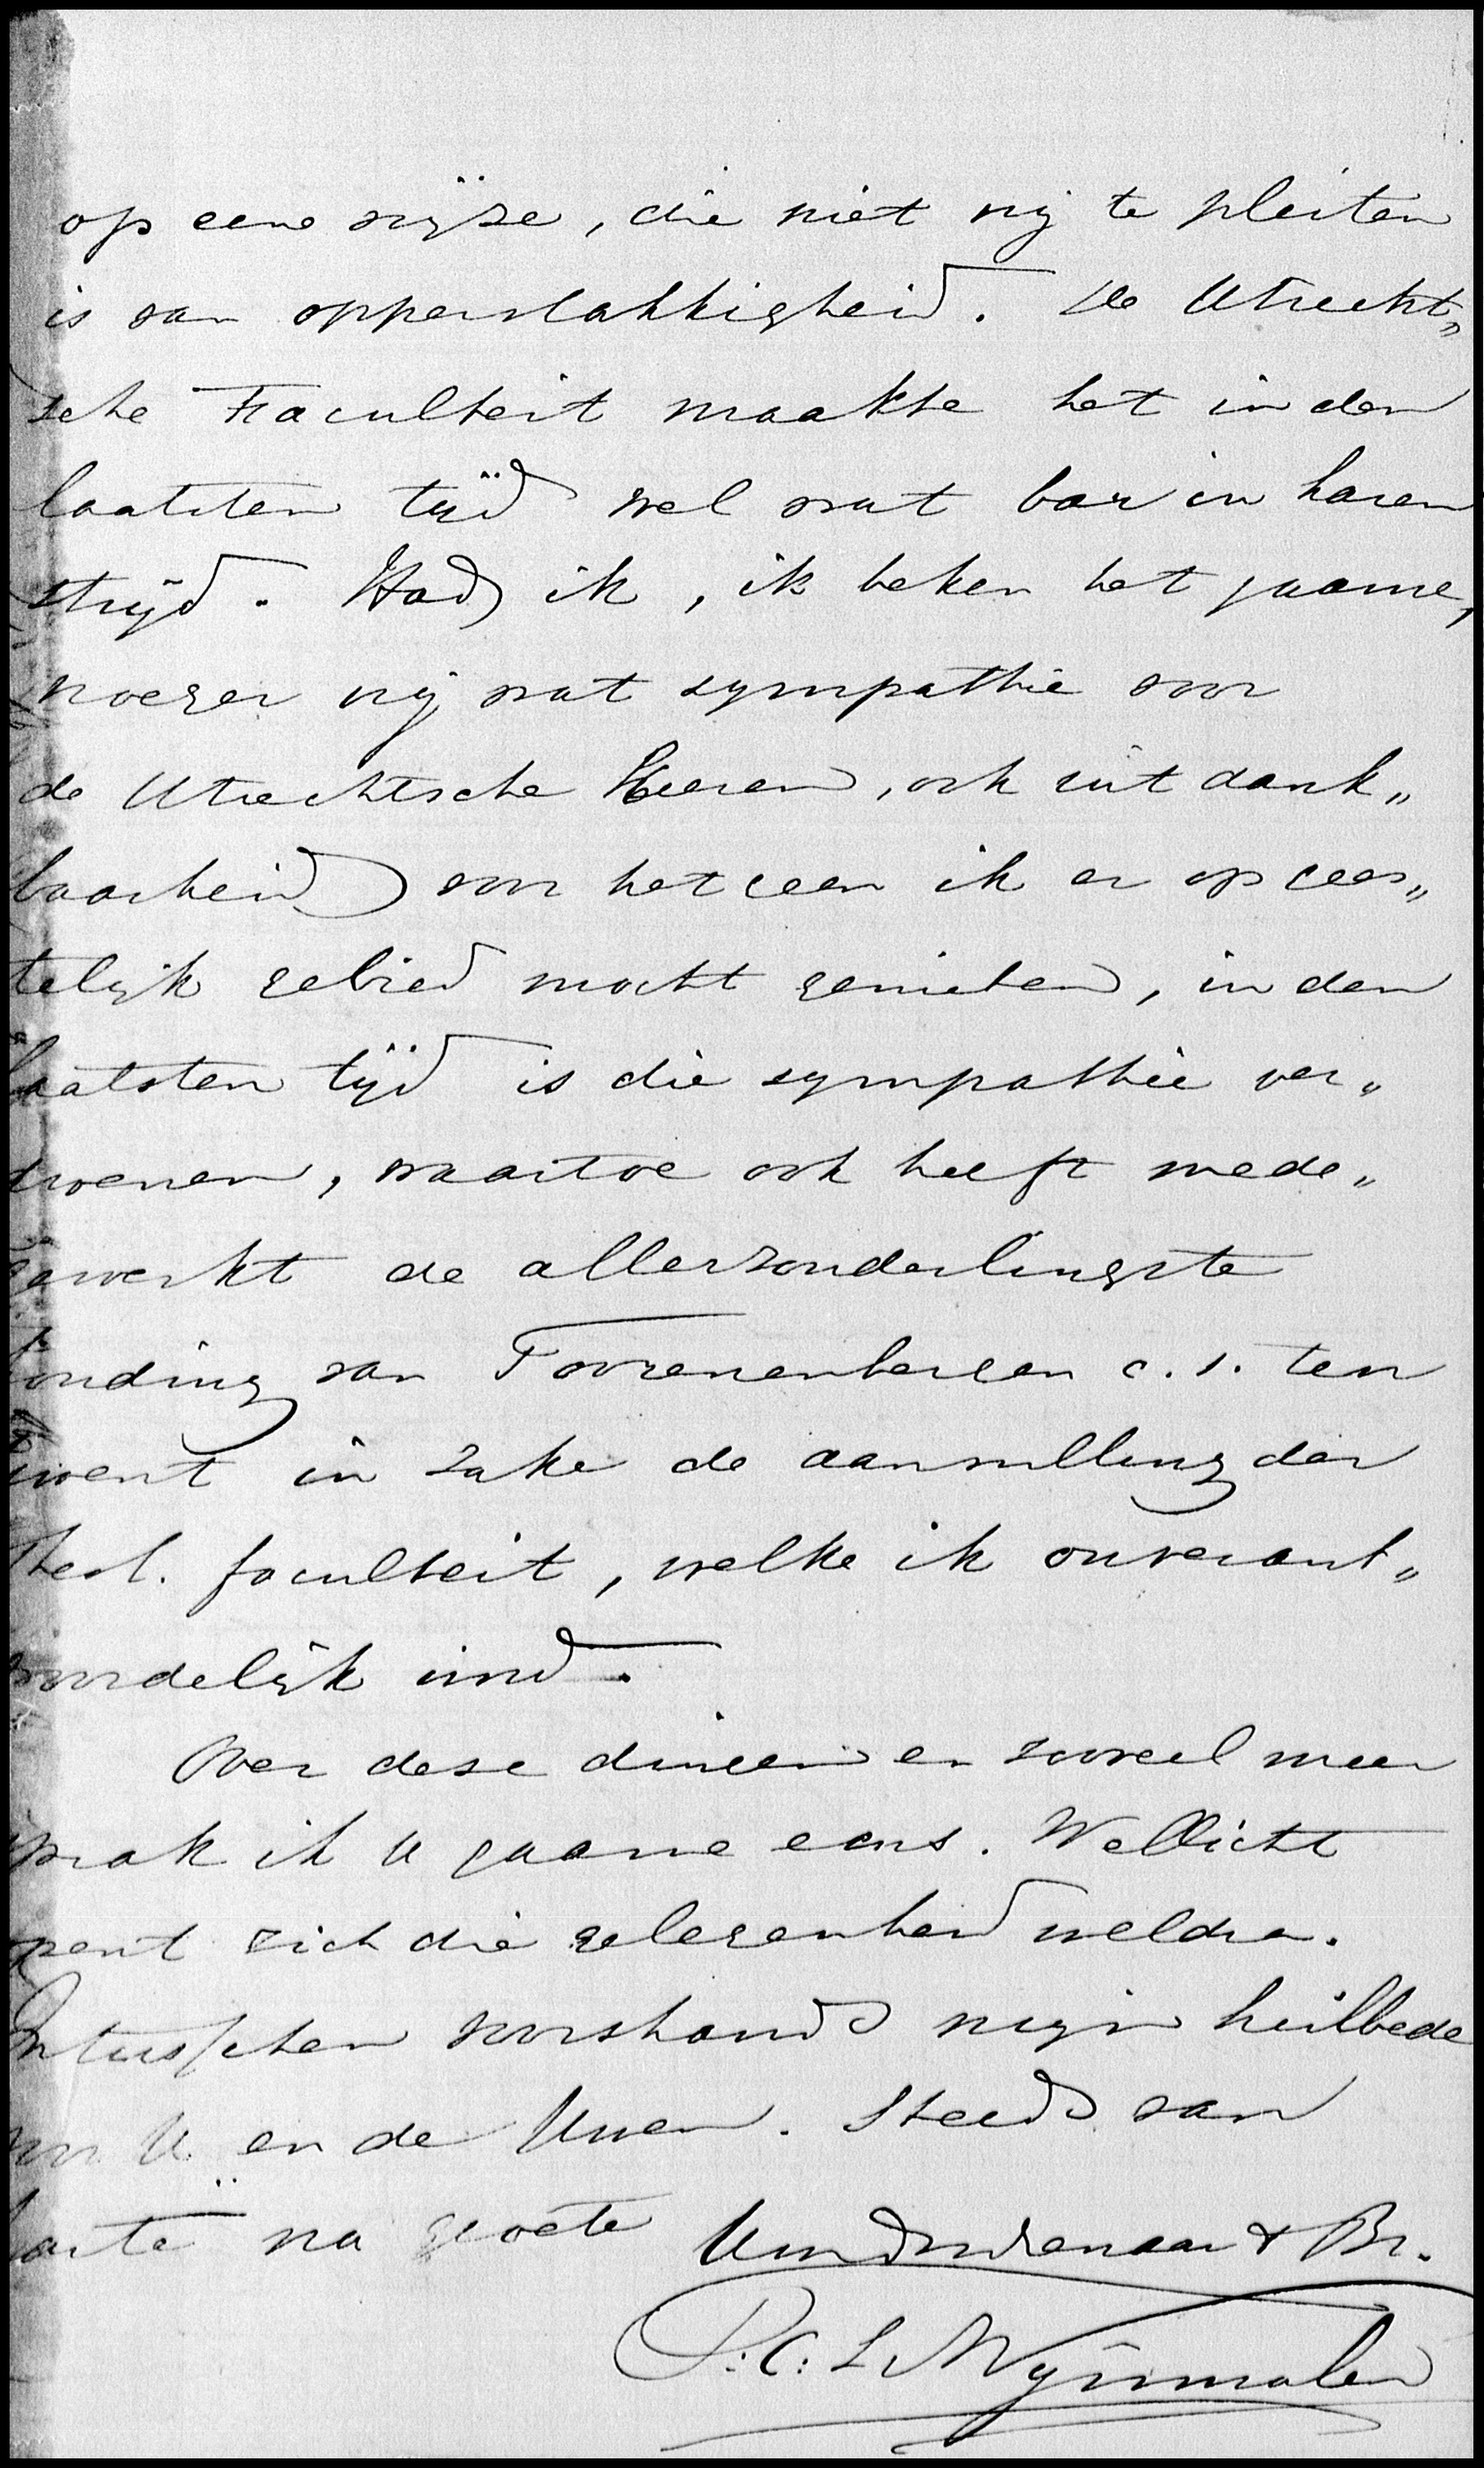 op eene wijze, die niet vrij te pleiten
is van oppervlakkigheid. De Utrecht„
sche Faculteit maakte het in den
laatsten tijd wel wat bar in haren
strijd. Had ik, ik beken het gaarne,
vroeger vrij wat sympathie voor
de Utrechtsche Heeren, ook uit dank„
baarheid voor hetgeen ik er op gees„
telijk gebied mocht genieten, in den
laatsten tijd is die sympathie ver„
dwenen, waartoe ook heeft mede„
gewerkt de allerzonderlingste
houding van Toorenenbergen c.s. ten
in zake de aanvulling der
theol. faculteit, welke ik onverant„
woordelijk vind.
Over deze dingen en zooveel meer
sprak ik U gaarne eens. Wellicht
opent zich die gelegenheid weldra.
Intusschen voorshands mijn heilbede
voor U en de Uwen. Steeds van
harte na groete Uw dw dienaar & Br.
P. C. L. Wijnmalen